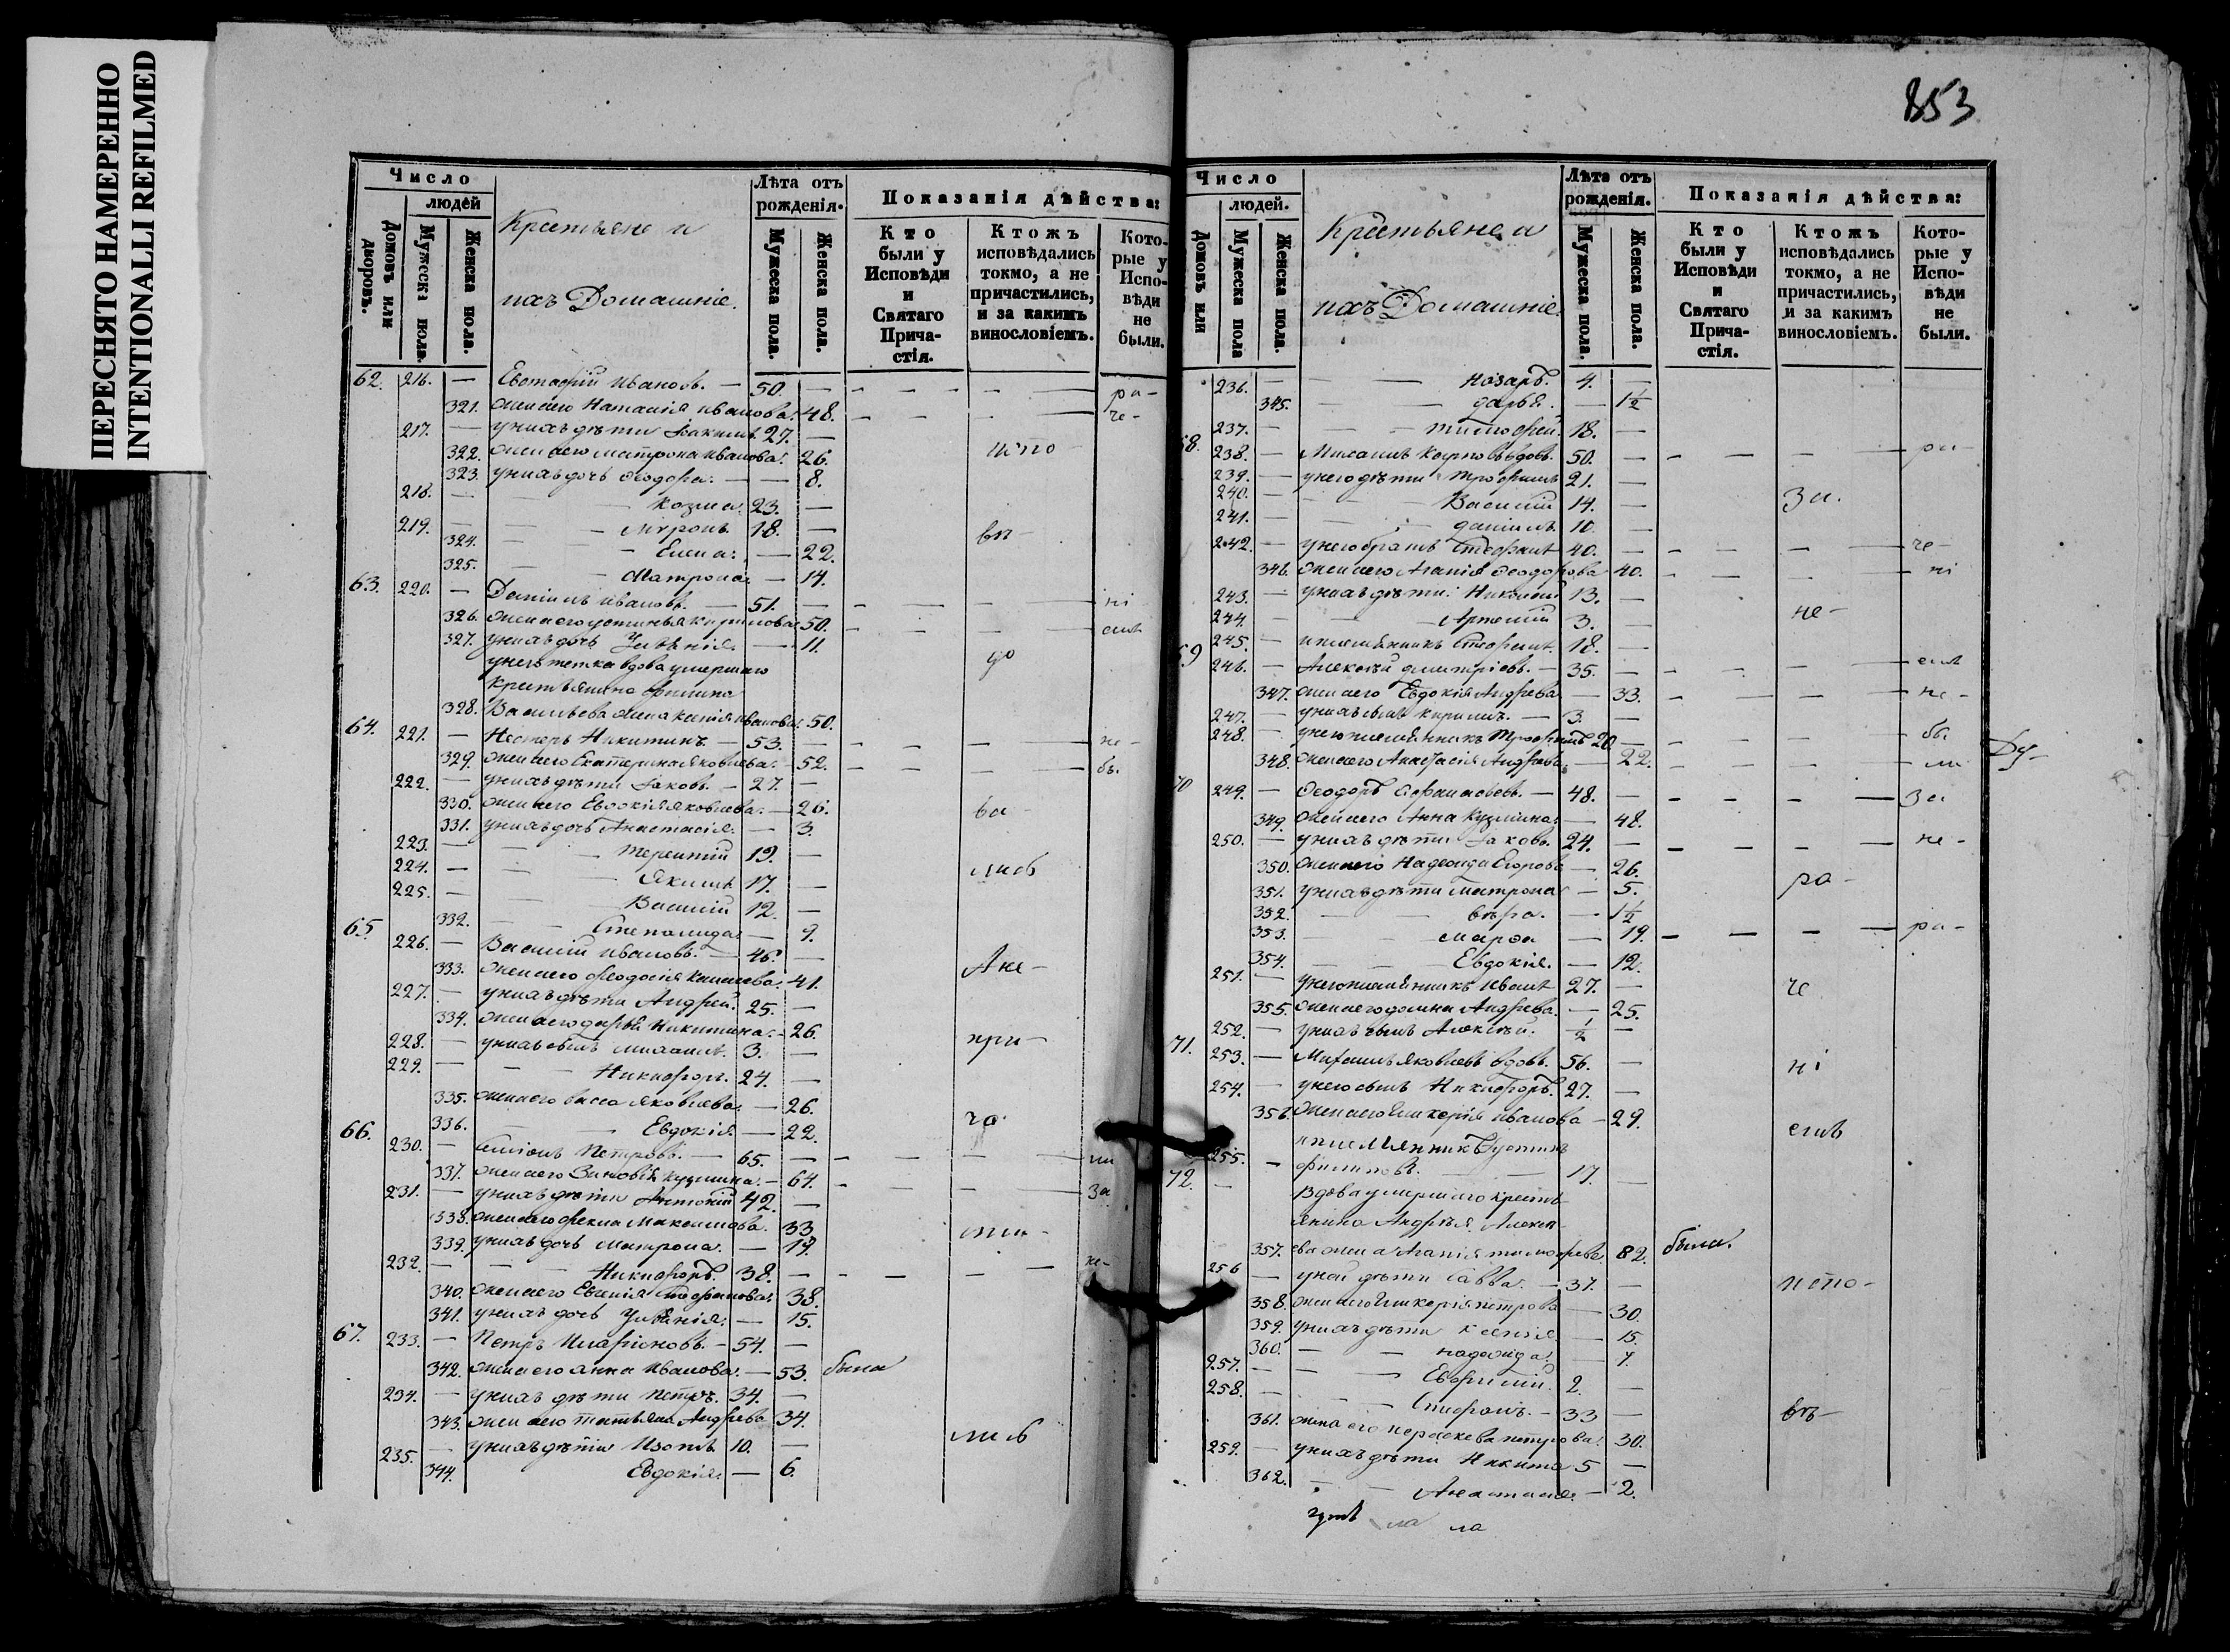 ПЕРЕСНЯТО НАМЕРЕННО
INTENTIONALLI REFILMED
Число
людей
Домовъ или дворовъ.
Мужеска пола.
Женска пола.
Крестьяне и
ихъ Домашніе.
Лѣта отъ рожденія.
Мужеска пола.
Женска пола.
Показанія дѣйства:
Кто были у Исповѣди и Святаго Прича-стія.
Ктожъ исповѣдались токмо, а не причастились, и за какимъ винословіемъ.
Кото-рые у Испо-вѣди не были.
62. 216. — Евстафій Ивановъ. — 50. — ра-
321. жена его Наталія Иванова. 48. че-
217. — у нихъ дѣти Іакимъ 27. —
322. жена его Матрона Иванова. 26. испо
323. у нихъ дочь Ѳеодора. — — 8.
218. — Козма. 23. —
219. — Мѵронъ 18. — вѣ-
324. — Елена. — 22.
325. — Матрона. — 14.
63. 220. — Даніилъ Ивановъ. — 51. — ні
326. жена его Устинья Кирилова. 50. емъ
327. у нихъ дочь Уліянія. — 11.
у него тетка вдова умершаго до
крестьянина Филипа
328. Васильева жена Ксенія Иванова. 50.
64. 221. — Нестеръ Никитинъ. — 53. — не-
329. жена его Екатерина Яковлева. — 52. бы
222. — у нихъ дѣти Іаковъ. — 27. —
330. жена его Евдокія Яковлева. — 26. ва-
331. у нихъ дочь Анастасія. — 3.
223. — Терентій 19. —
224. — Якимъ 17. — лись
225. — Василій 12. —
332. — Степанида. — 9.
65. 226. — Василій Ивановъ. — 46. —
333. жена его Ѳеодосія 41. Ане-
227. — у нихъ дѣти Андрей. 25. —
334. жена его Дарья Никитина. — 26.
228. — у нихъ сынъ Михаилъ. 3. — при-
229. — Никифоръ. 24. —
335. жена его Васса Яковлева. — 26.
336. — Евдокія — 22. ча
66. 230. — Петровъ. — 65. — ли
337. жена его Зиновія Кузмина. — 64. за
231. — у нихъ дѣти Антоній 42. —
338. жена его Фекла Максимова. 33
339. у нихъ дочь Матрона. — 19. сти-
232. — Никифоръ. 38. — не-
340. жена его Евгенія Стефанова. 38.
341. у нихъ дочь Уліянія. — 15.
67. 233. — Петръ Иларіоновъ. — 54. —
342. жена его Анна Иванова. — 53. были
234. — у нихъ дѣти Петръ. 34. —
343. жена его Татьяна Андрева 34.
235. — у нихъ дѣти Изотъ 10. — лись
344. Евдокія. — 6.
853
Число
людей.
Домовъ или
Мужеска пола
Женска пола.
Крестьяне и
ихъ Домашніе.
Лѣта отъ рожденія.
Мужеска пола.
Женска пола.
Показанія дѣйства:
Кто были у Исповѣди и Святаго Прича-стія.
Ктожъ исповѣдались токмо, а не причастились, и за какимъ винословіемъ.
Кото-рые у Испо-вѣди не были.
236. — Назаръ. 4. —
345. — Дарья. — 1½
237. — Тимофей. 18. —
68. 238. — Михаилъ Карповъ вдовъ. 50. — ра-
239. — у него дѣти Трофимъ 21. —
240. — Василій 14. — За.
241. — Даніилъ. 10. —
242. — у него братъ Стефанъ 40. — че-
346. жена его Агапія Ѳеодорова 40. ні
243. — у нихъ дѣти: Николай 13. —
244. — Артемій 3. — не-
245. — и племянникъ Стефанъ. 18. —
69 246. — Алексѣй Дмитріевъ. — 35. — емъ
347. жена его Евдокія Андрева — 33. не-
247. — у нихъ сынъ Кирилъ. — 3. —
248. — у него племянникъ Трофимъ 20 — бы
348. жена его Анастасія Андрева. — 22. ли Ду-
70 249. — Ѳеодоръ — 48. — за
349. жена его Анна Кузмина. — 48.
250. — у нихъ дѣти Іаковъ. 24. — не-
350. жена его Надежда Егорова — 26.
351. у нихъ дѣти Матрона — 5. ра-
352. — Вѣра. — 1½
353. — Марѳа — 19. ра-
354. — Евдокія. — 12.
251. — у него племянникъ Иванъ 27. — че
355. жена его Домна Андрева. — 25.
252. — у нихъ сынъ Алексѣй. ½ —
71. 253. — Яковлевъ вдовъ. 56. — ні
254. — у него сынъ Никифоръ. 27. —
356. жена его Гликерія Иванова — 29. емъ
племянникъ Устинъ
255. — Филиповъ. — 17. —
72 — Вдова умершаго кресть-
янина Андрея Алексѣ-
357. ева жена Агапія Тимофева. 82. была.
256 — у ней дѣти Савва. — 37. — испо-
358. жена его Гликерія Петрова — 30.
359. у нихъ дѣти Ксенія. — 15
360. — Надежда. — 7.
257. — Евфимій. 2. —
258. — Стефанъ. — 33 — вѣ-
361. жена его Параскева Петрова. 30.
259. — у нихъ дѣти Никита 5 —
362. — Анастасія. — 2.
ла ла